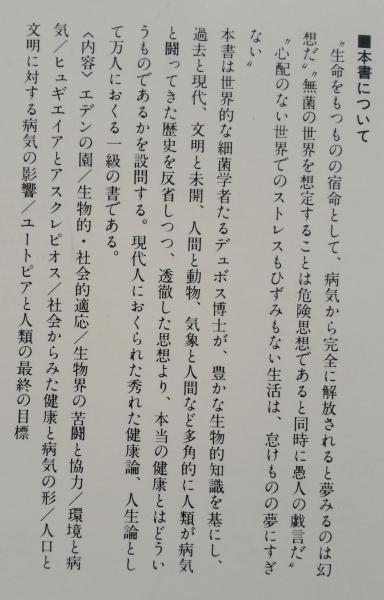 ■本書について
〝生命をもつものの宿命として、病気から完全に解放されると夢みるのは幻
想だ〟〝無菌の世界を想定することは危険思想であると同時に愚人の戯言だ〟
〝心配のない世界でのストレスもひずみもない生活は、怠けものの夢にすぎ
ない〟
本書は世界的な細菌学者たるデュボス博士が、豊かな生物的知識を基にし、
過去と現代、文明と未開、人間と動物、気象と人間など多角的に人類が病気
と闘ってきた歴史を反省しつつ、透徹した思想より、本当の健康とはどうい
うものであるかを設問する。現代人におくられた秀れた健康論、人生論とし
て万人におくる一級の書である。
〈内容〉エデンの園／生物的・社会的適応／生物界の苦闘と協力／環境と病
気／ヒュギエイアとアスクレピオス／社会からみた健康と病気の形／人口と
文明に対する病気の影響／ユートピアと人類の最終の目標